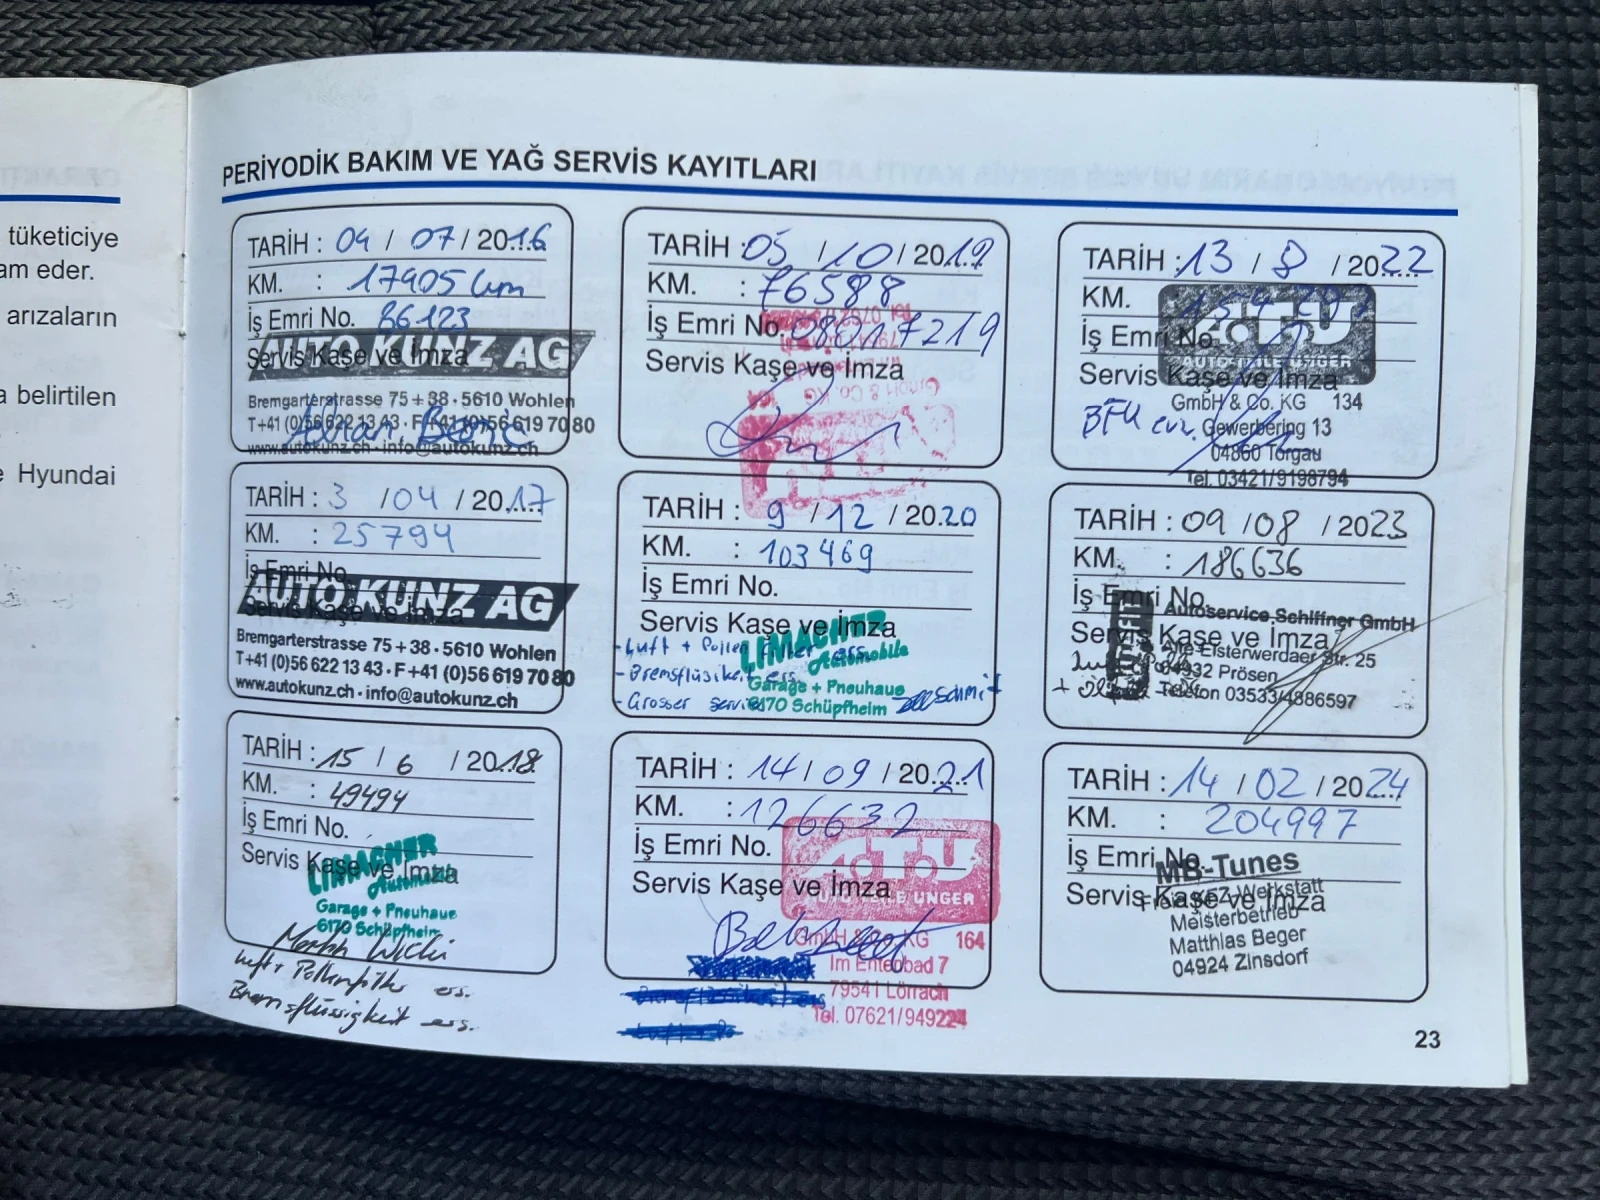 tüketiciye
am eder.
arızaların
a belirtilen
e Hyundai
PERİYODİK BAKIM VE YAĞ SERVİS KAYITLARI
TARİH : 04 / 07 / 2016
KM. : 17905 km
İş Emri No. 86123
Servis Kaşe ve İmza
AUTO KUNZ AG
Bremgarterstrasse 75 + 38 · 5610 Wohlen
T+41 (0)56 622 13 43 · F+41 (0)56 619 70 80
www.autokunz.ch · info@autokunz.ch
TARİH : 3 / 04 / 2017
KM. : 25794
İş Emri No.
AUTO KUNZ AG
Servis Kaşe ve İmza
Bremgarterstrasse 75 + 38 · 5610 Wohlen
T+41 (0)56 622 13 43 · F+41 (0)56 619 70 80
www.autokunz.ch · info@autokunz.ch
TARİH : 15 / 6 / 2018
KM. : 49494
İş Emri No.
Servis Kaşe ve İmza
LIMACHER
Automobile
Garage + Pneuhaus
6170 Schüpfheim
Luft + Pollenfilter ers.
Bremsflüssigkeit ers.
TARİH : 05 / 10 / 2019
KM. : 76588
İş Emri No.
Servis Kaşe ve İmza
GmbH & Co. KG
TARİH : 9 / 12 / 2020
KM. : 103469
İş Emri No.
Servis Kaşe ve İmza
LIMACHER
Automobile
Garage + Pneuhaus
6170 Schüpfheim
- Luft + Pollen filter ers.
- Bremsflüsikeit ers.
- Grosser service
TARİH : 14 / 09 / 2021
KM. : 126632
İş Emri No.
Servis Kaşe ve İmza
A.T.U
AUTO-TEILE UNGER
GmbH & Co. KG 164
Im Entenbad 7
79541 Lörrach
Tel. 07621/949224
TARİH : 13 / 8 / 2022
KM.
İş Emri No.
Servis Kaşe ve İmza
A.T.U
AUTO-TEILE UNGER
GmbH & Co. KG 134
Gewerbering 13
04860 Torgau
Tel. 03421/9198794
TARİH : 09 / 08 / 2023
KM. : 186636
İş Emri No.
Autoservice Schiffner GmbH
Servis Kaşe ve İmza
Alte Elsterwerdaer Str. 25
04932 Prösen
Telefon 03533/4886597
TARİH : 14 / 02 / 2024
KM. : 204997
İş Emri No.
MB-Tunes
Servis Kaşe ve İmza
Freie KFZ-Werkstatt
Meisterbetrieb
Matthias Beger
04924 Zinsdorf
23